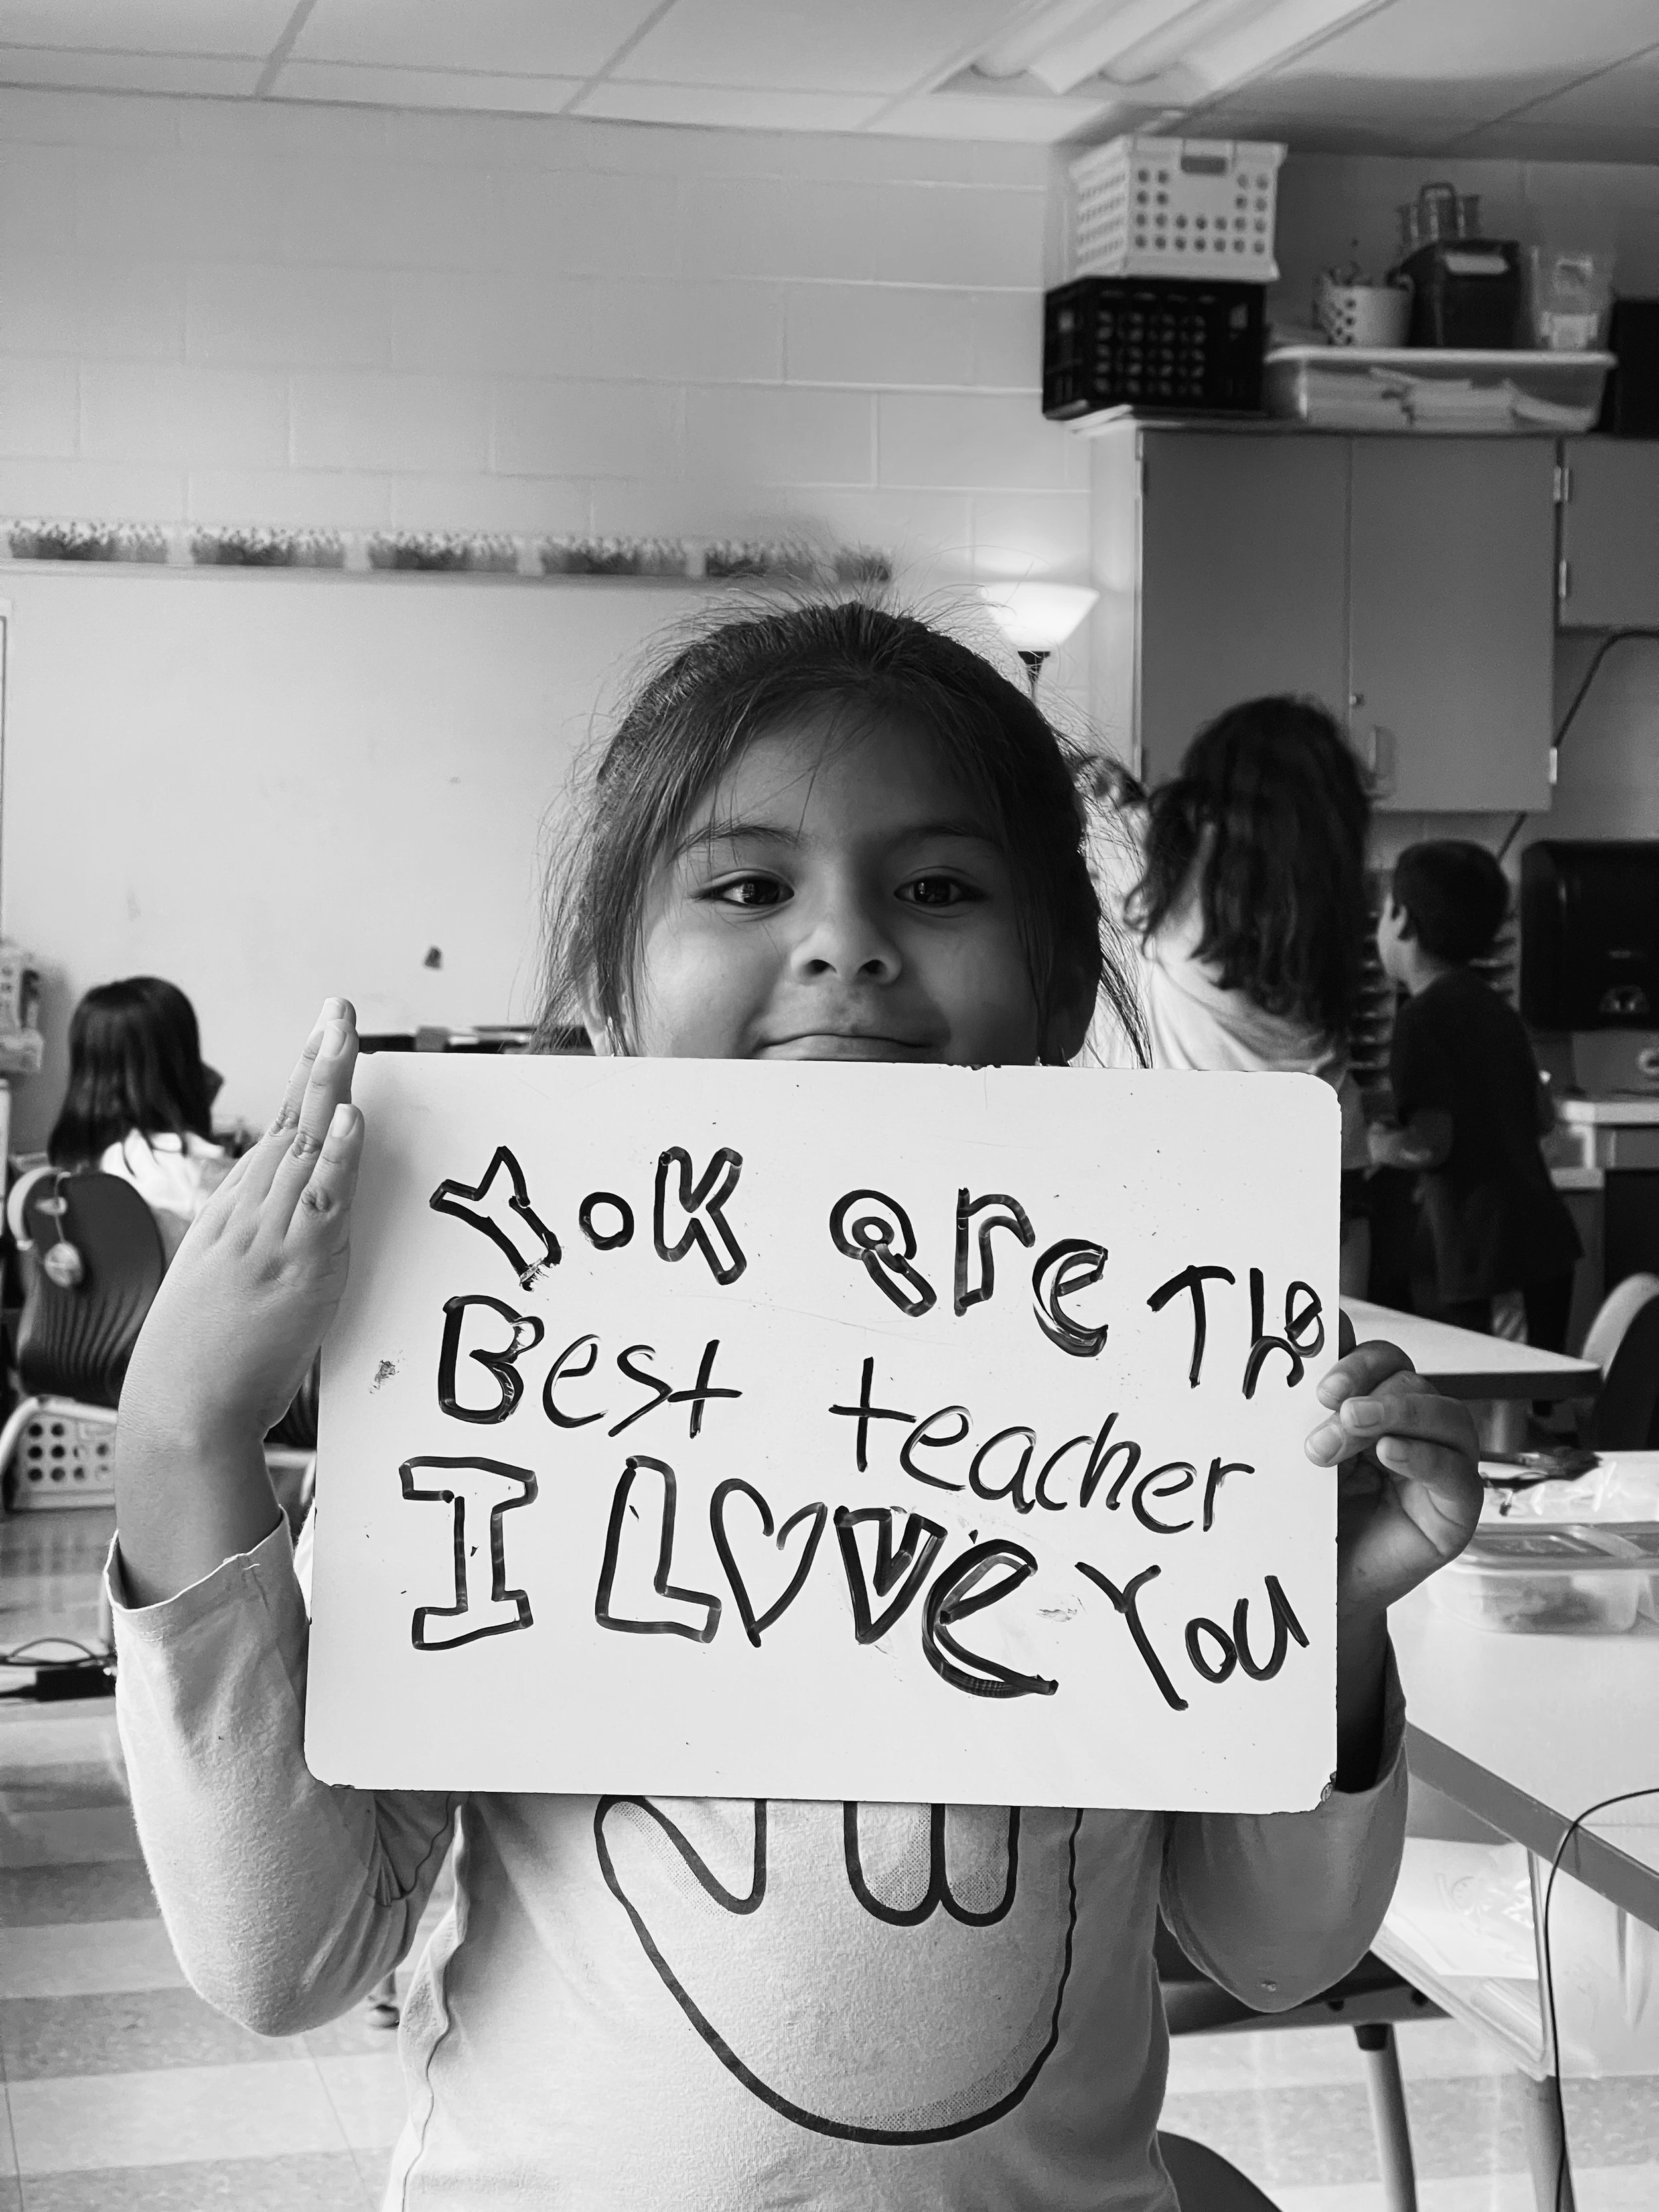 Yok are The
Best teacher
I Love You